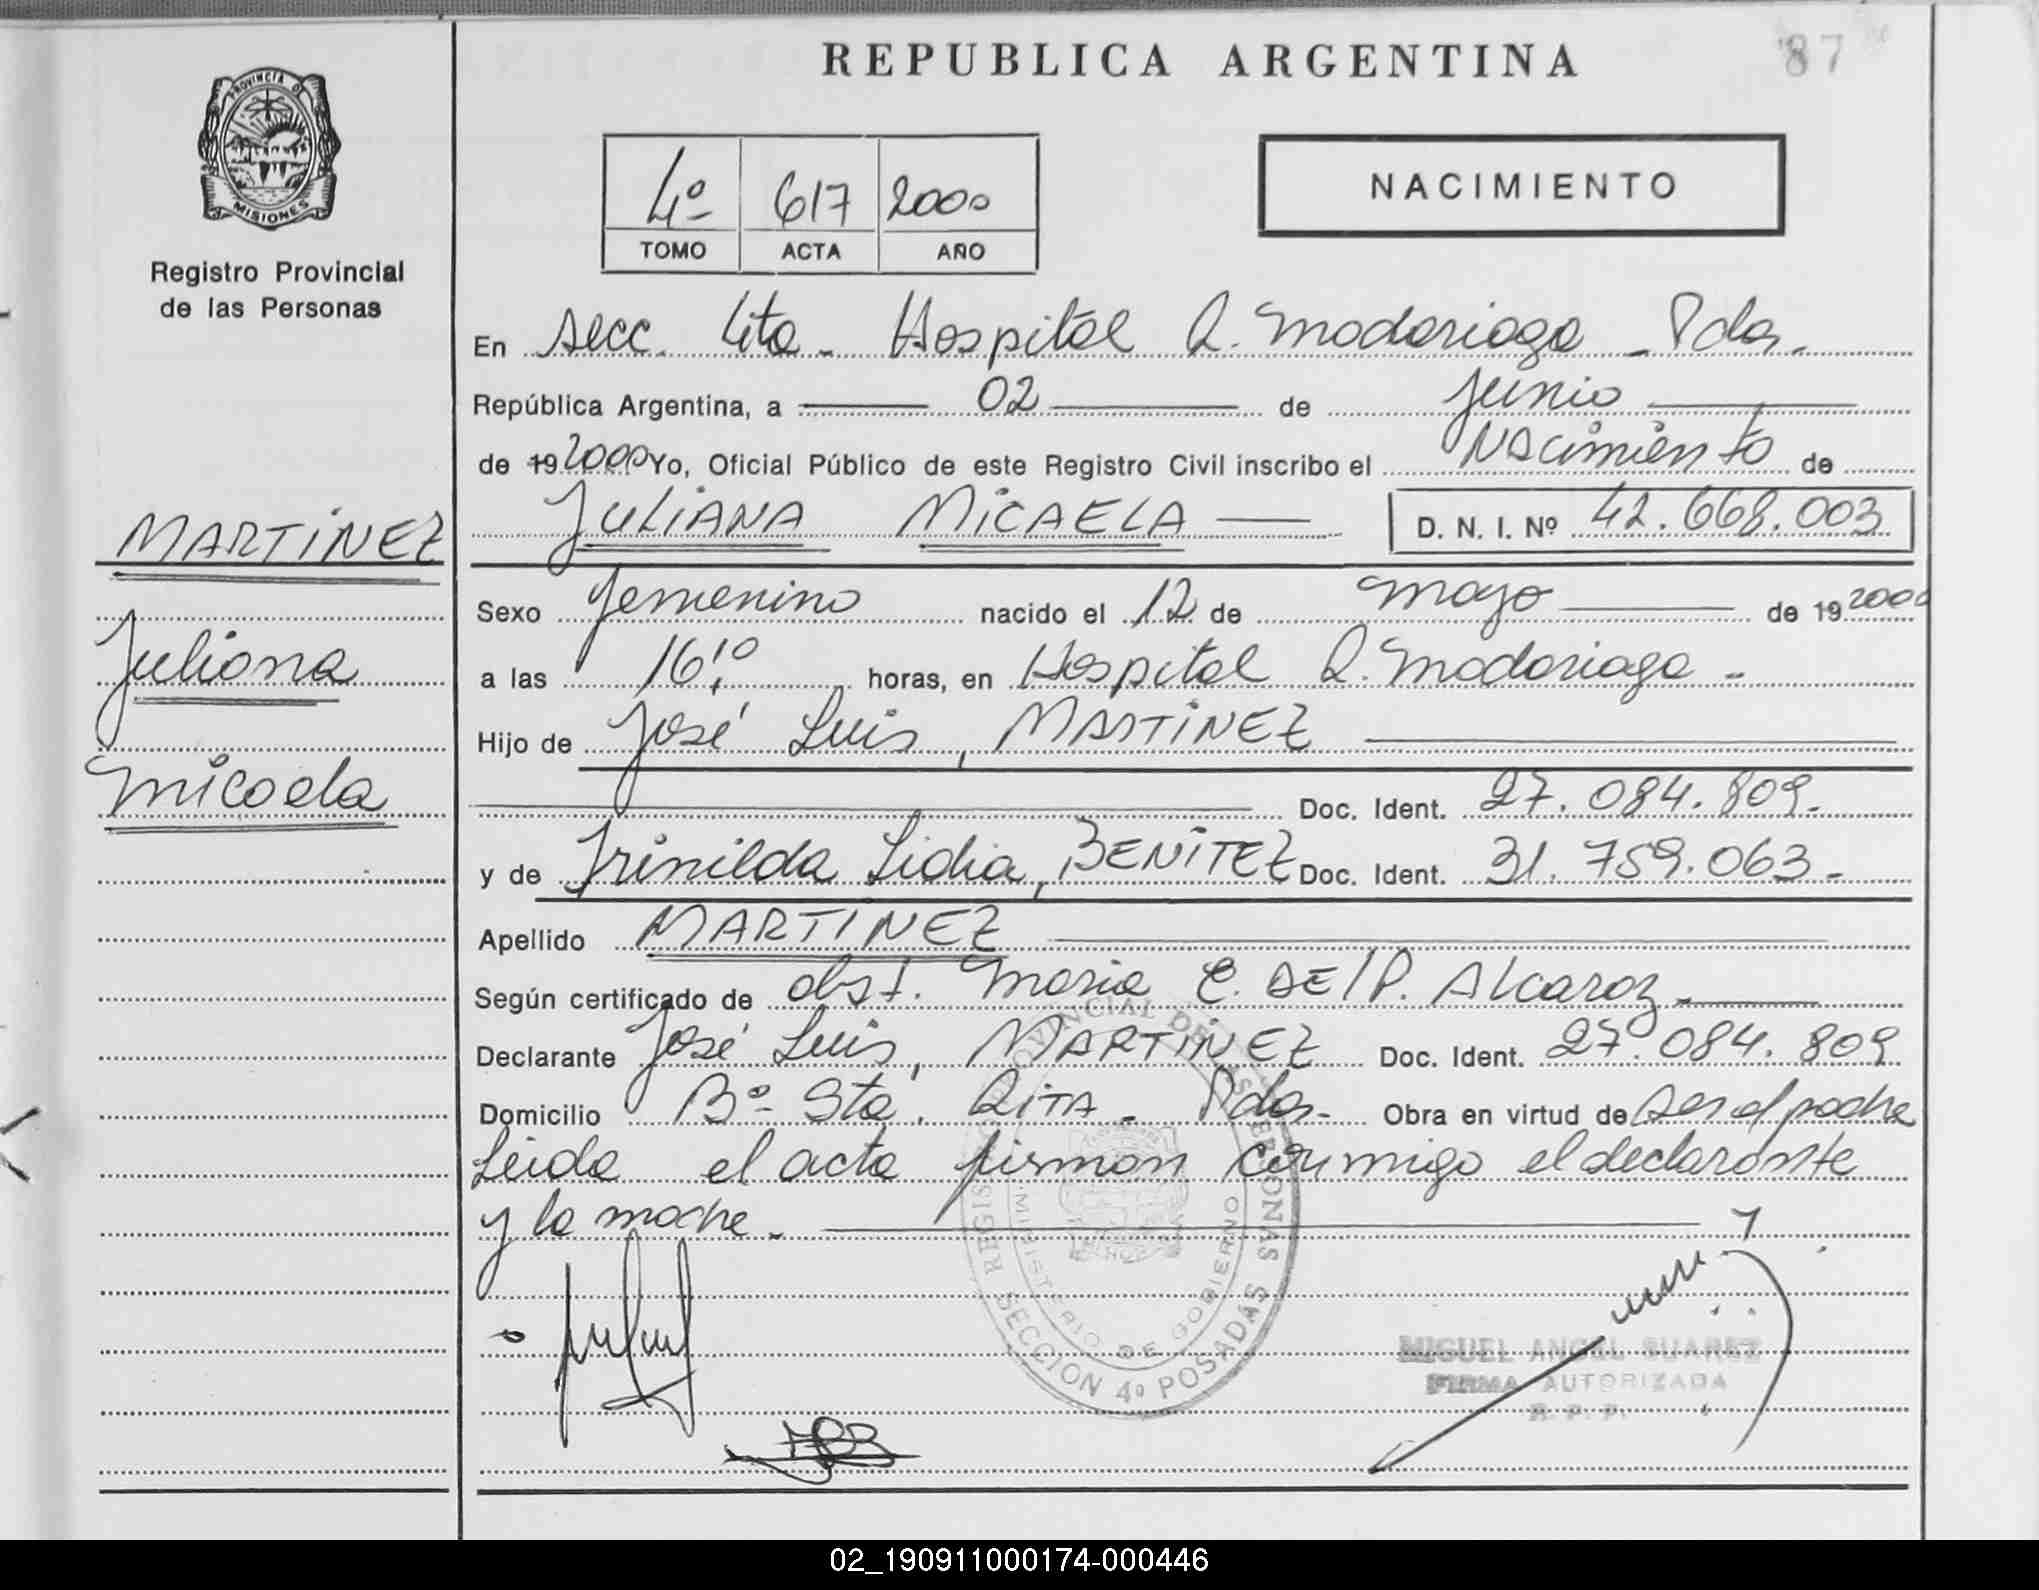 REPUBLICA ARGENTINA
87
PROVINCIA DE
MISIONES
Registro Provincial
de las Personas
4º 617 2000
TOMO ACTA AÑO
NACIMIENTO
En Secc. 4ta. Hospital R. Madariaga - Pdas.
República Argentina, a 02 de Junio
de 19 2000 Yo, Oficial Público de este Registro Civil inscribo el Nacimiento de
JULIANA MICAELA D. N. I. Nº 42.668.003
MARTINEZ
Juliana
Micaela
Sexo Femenino nacido el 12 de Mayo de 19 2000
a las 16,10 horas, en Hospital R. Madariaga -
Hijo de José Luis, MARTINEZ
Doc. Ident. 27.084.809.
y de Irinilda Lidia, BENITEZ Doc. Ident. 31.759.063.
Apellido MARTINEZ
Según certificado de obst. Maria E. DEL P. Alcaraz.
Declarante José Luis, MARTINEZ Doc. Ident. 27.084.809
Domicilio Bº Sta. RITA - Pdas. Obra en virtud de ser el padre
Leida el acta firman conmigo el declarante
y la madre.
REGISTRO PROVINCIAL DE LAS PERSONAS
MINISTERIO DE GOBIERNO
SECCION 4º POSADAS
MIGUEL ANGEL SUAREZ
FIRMA AUTORIZADA
R. P. P.
02_190911000174-000446